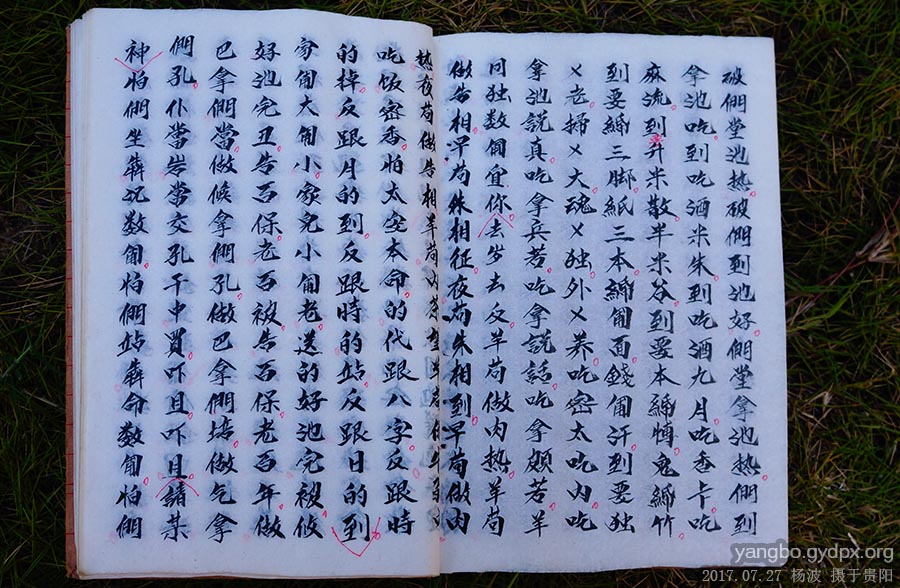 破們堂池热破們到池好們堂拿池热們到
拿池吃到吃酒米朱到吃酒九月吃香卡吃
麻流到升米散半米谷到要本綿慎鬼綿竹
到要綿三脚紙三本綿匍面錢匍汗到要独
乂老掃乂大魂乂独外乂养吃密太吃内吃
拿池説真吃拿兵若吃拿説話吃拿頗若羊
同独数匍宜你去岁去反羊苟做肉热羊苟
做告相早苟朱相征夜苟朱相到早苟做肉
热夜苟做告相羊苟内
吃饭密香怕太安本命的代跟八字反跟時
的掉反跟月的到反跟時的站反跟日的到
家匍大匍小家完小匍老送的好池完被攸
好池完丑告否保老否被告否保老否年做
巴拿們當做候拿們孔做巴拿們塆做乞拿
們孔仆當岩常交孔干中買吓且吓且請某
神怕們坐犇況数匍怕們站犇命数匍怕們
yangbo.gydpx.org
2017.07.27 杨波 摄于贵阳